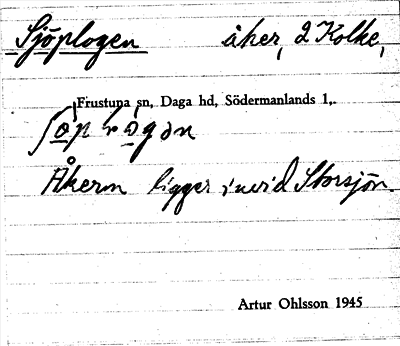 Sjöplogen åker, 2 Kolke,
Frustuna sn, Daga hd, Södermanlands l.
Åkern ligger invid Storsjön.
Artur Ohlsson 1945